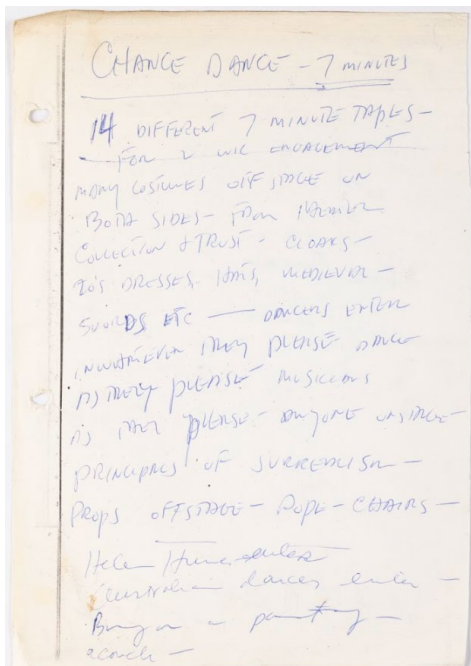 CHANCE DANCE - 7 MINUTES
14 DIFFERENT 7 MINUTE TAPES -
FOR 2 WK ENGAGEMENT
MANY COSTUMES OFF STAGE ON
BOTH SIDES - FROM
COLLECTION & TRUST - CLOAKS -
20'S DRESSES, HATS, MEDIEVAL -
SWORDS ETC — DANCERS ENTER
WHENEVER THEY PLEASE DANCE
AS THEY PLEASE MUSICIANS
AS THEY PLEASE - ANYONE ONSTAGE -
PRINCIPALS OF SURREALISM -
PROPS OFFSTAGE - ROPE - CHAIRS -
Helen
Australian dances enter -
Bring on a painting -
a couch -